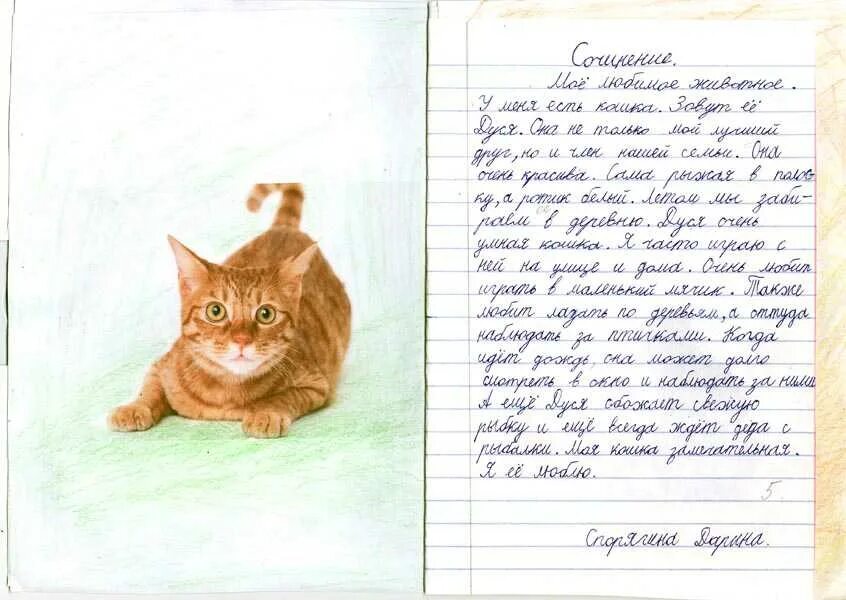 Сочинение.
Моё любимое животное.
У меня есть кошка. Зовут её
Дуся. Она не только мой лучший
друг, но и член нашей семьи. Она
очень красива. Сама рыжая в полос-
ку, а ротик белый. Летом мы заби-
раем её в деревню. Дуся очень
умная кошка. Я часто играю с
ней на улице и дома. Очень любит
играть в маленький мячик. Также
любит лазать по деревьям, а оттуда
наблюдать за птичками. Когда
идёт дождь, она может долго
смотреть в окно и наблюдать за ними
А ещё Дуся обожает свежую
рыбку и ещё всегда ждёт деда с
рыбалки. Моя кошка замечательная.
Я её люблю.
5
Спорягина Дарина.